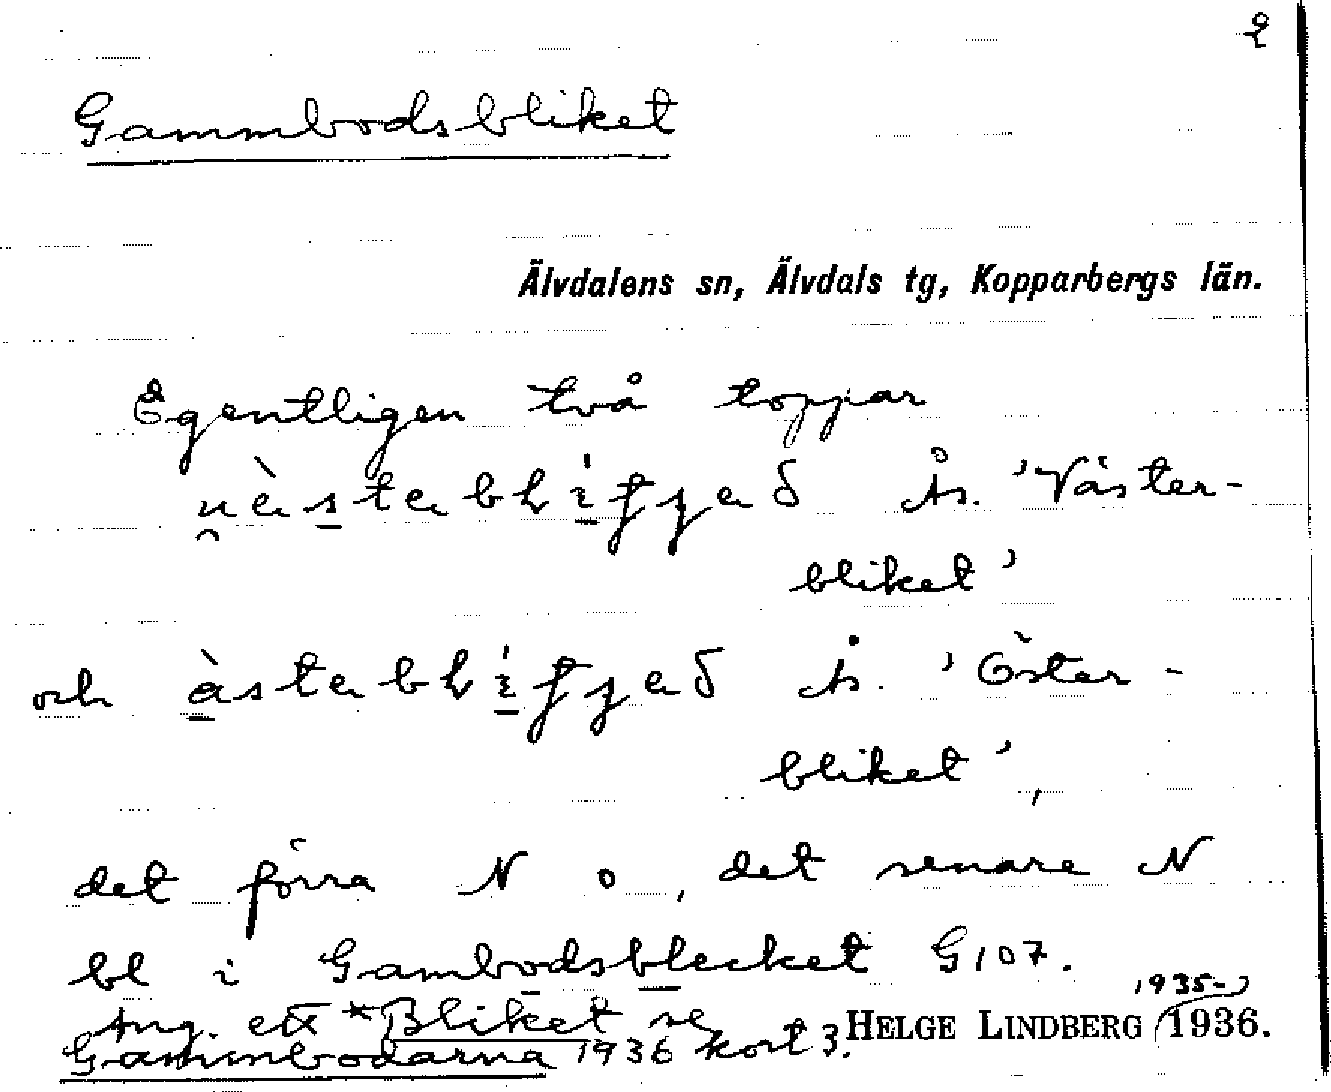 2
Gammbodsbliket
Älvdalens sn, Älvdals tg, Kopparbergs län.
Egentligen två toppar
Ås. 'Väster-
bliket'
och Ås. 'Öster-
bliket',
det förra N o, det senare N
bl i Gambodsblecket G107.
Ang. ett *Bliket se
1935-
Gammbodarna 1936 kort 3. HELGE LINDBERG 1936.